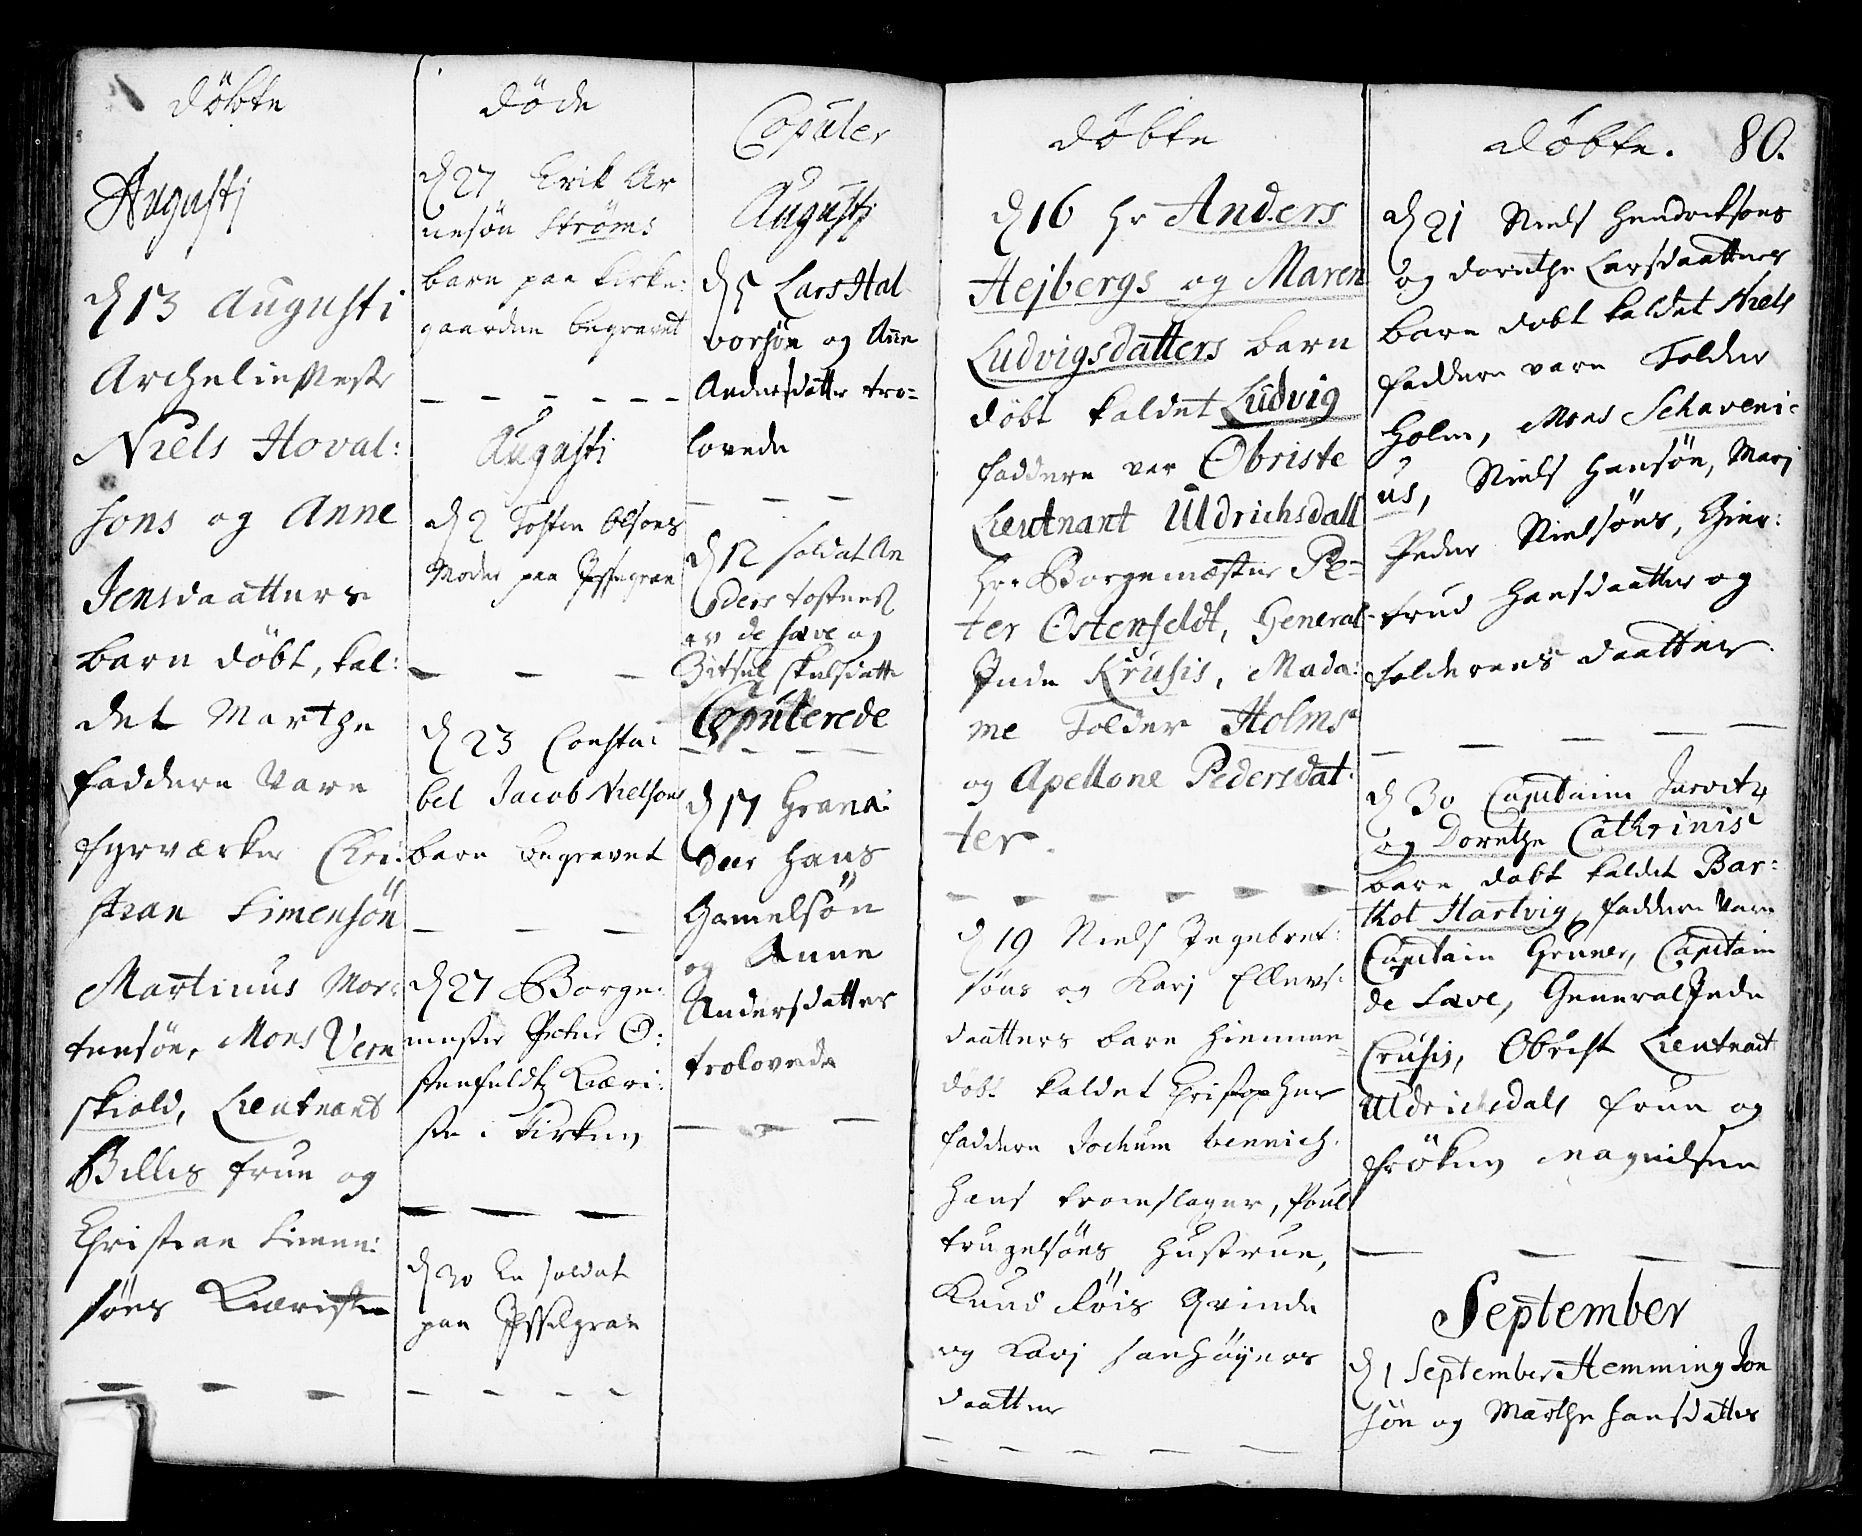 Döbte
Augustj
D 13 Augusti
Archelimest
Niels Hoval:
sons og Anne
Jensdaatters
barn döbt, kal:
det Marthe
faddere vare
fyrværker Chri:
stian Simensön
Martinus Mor:
tensön, Mons Vern
skiold, Lieutnant
Billis frue og
Christian Simen:
söns Kieriste
Döde
D 27 Erik Ar
nesön Ströms
barn paa kirke:
gaarden begravet
Augusti
D 2 Tosten Olsöns
Moder paa Issegran
D 23 Consta:
bel Jacob Nielsöns
barn begravet
D 27 Borge:
mester Peter O:
stenfeldtz Kieri:
ste i Kirken
D 30 En soldat
paa Isselgran
Copuler
Augustj
D 5 Lars Hal
vorsön og Ane
Andersdatter tro=
lovede
D 12 soldat An
ders tostens
av de save og
skielsdatt
Copulerede
D 17 Grana:
deer Hans
Gamelsön
og Anne
Andersdatter
trolovede
Döbte
D 16 Hr Anders
Hejbergs og Maren
Ludvigsdatters barn
döbt kaldet Ludvig
faddere var Obriste
Lieutnant Uldrichsdall
Hr: Borgemæster Pe=
ter Ostenfeldt, General
Inde Krusis, Mada:
me Tolder Holms
og Apellone Pedersdat:
ter.
D 19 Niels Ingebret:
söns og Karj Ellevs:
daatters barn hiemme=
döbt kaldet Christopher
faddere Jochum bennich,
Hans tromslager, Poul
truzelsöns Hustrue,
Knud Röis Qvinde
og Karj Hanhöyers
daatter
Döbte. 80.
D 21 Niels Hendricksöns
og dorethe Larsdaatters
barn döbt kaldet Niels
faddere vare Tolder
Holm, Mons Schaveni:
us, Niels Hansön, Marj
Peder Nielsöns, Gier:
trud Hansdaatter og
Tolderens daatter.
D 30 Capitaim Jarvitz
og Dorethe Cathrinis
barn döbt kaldet Bar:
tholt Hartvig, faddere Vare
Capitain Gruner, Capitain
de Save, General Inde
Crusis, Obrist Lieutnant
Uldrichsdals frue og
fröken Magnilsen
September
D 1 September Hemming Jon
sön og Marthe Hansdatters